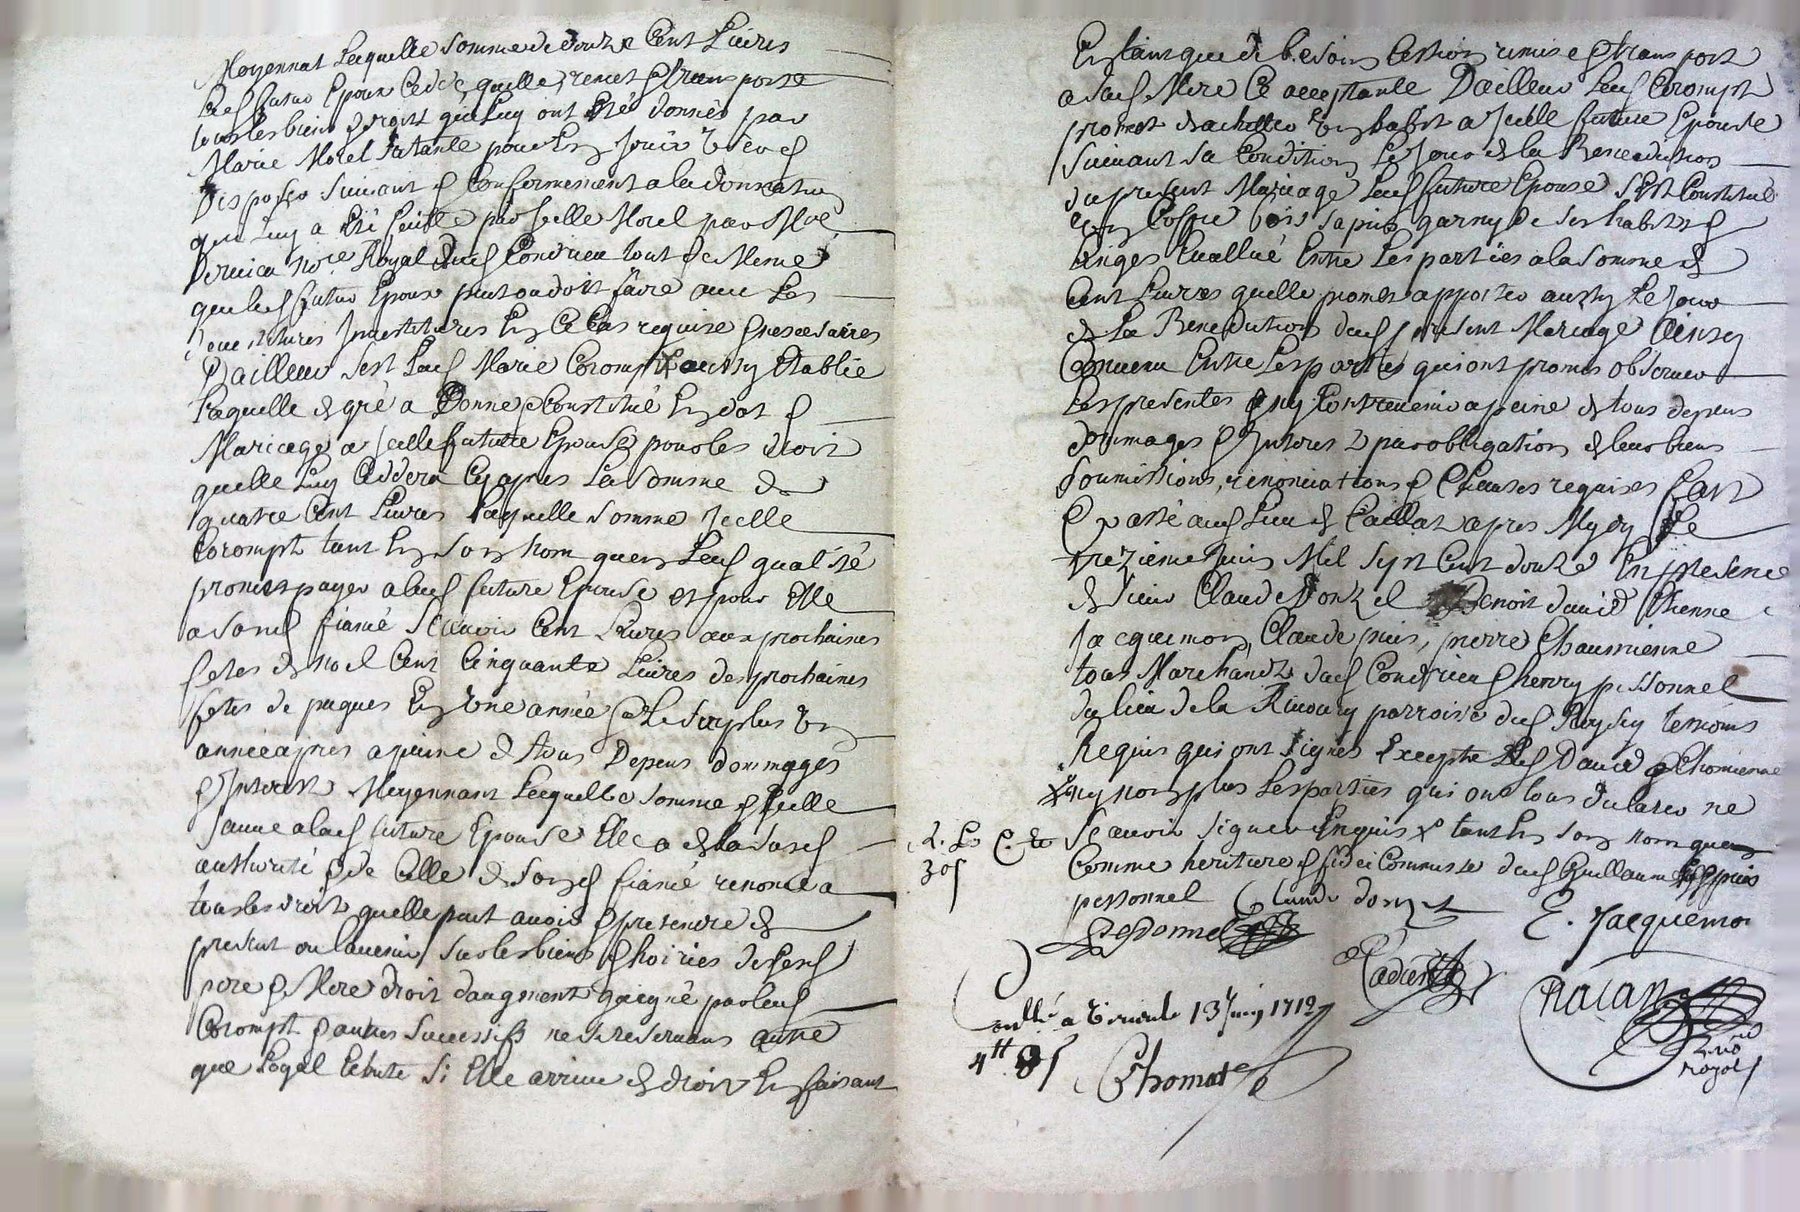 Moyennat Lecquelle somme de douze Cent Livres
Led futur Epoux Cedde, quelle, remet & transporte
tous les biens & droits qui Luy ont été donnés par
Marie Morel sa tante pour En Jouir User &
Disposer suivant & Conformement a la donnation
que Luy a été faitte par Jcelle Morel par Me
Vernien noire Royal dud Condrieu tout de Meme
que led futur Epoux peut ou doit faire avec Les
Investitures En Ce Cas requise & necessaires
D'ailleur sest Lad Marie Corompt aussy Etablie
Laquelle de gré a Donné & Constitué En dot &
Mariage a Jcelle future Epouse pour les droit
quelle Luy Ceddera Cy apres La somme de
quatre Cent Livres Laquelle somme Jcelle
Corompt tant En son nom quen Lad qualité
promet payer a lad future Epouse et pour Elle
a sond fiancé Scavoir Cent Livres aux prochaines
fetes de noel Cent Cinquante Livres des prochaines
fetes de paques En Une année & Le surplus Un
année apres a peine de tous Depens dommages
& Interest Moyennant Lecquelle somme & Jcelle
sauve a lad future Epouse Elle a de la susd
authorité & de Celle de sond fiancé renoncé a
tous les droits quelle peut avoir & pretendre de
present ou lavenir sur les biens & hoiries de sesd
pere & Mere droit daugment gaigné par lad
Corompt & autres successifs ne se reservans autre
que Loyal Echute si Elle arrive de droit En faisant
En tant que de besoin Cession remise & transport
a sad Mere Ce acceptante D'ailleur Lad Corompt
promet dachetter Un habit a Jcelle future Epouse
suivant sa Condition Le Jour de la Benediction
du present Mariage Lad future Epouse sest Constitué
Un Coffre bois sapin garny de ses habits &
linges Evallué Entre Les parties a la somme de
Cent Livres quelle promet apporter aussy Le Jour
de La Benediction dud present Mariage Ainsy
Convenu Entre Les parties qui ont promis observer
Les presentes & ny Contrevenir a peine de tous depens
dommages & Interes & par obligation de leurs biens
soumissions, renonciations & Clauses requises fait
& passé aud Lieu de Caillat apres Mydy Le
trezieme Juin Mil sept Cent douze En presence
de sieur Claude Donzel Benoit david Etienne
Jacquemon Claude puis, pierre Chaumienne
tous Marchands dud Condrieu & henry pessonnel
du lieu de la Rivoury parroisse dud temoins
Requis qui ont signes Excepte Led David & Chomienne
ny non plus Les parties qui ont tous declaré ne
Scavoir signer Enquis x tant En son nom quen
Comme heritiere & fidei Commisse dud Guillaume
pessonnel Claude donzel
E. Jacquemon
30s
13 Juin 1712
Chomat
royal